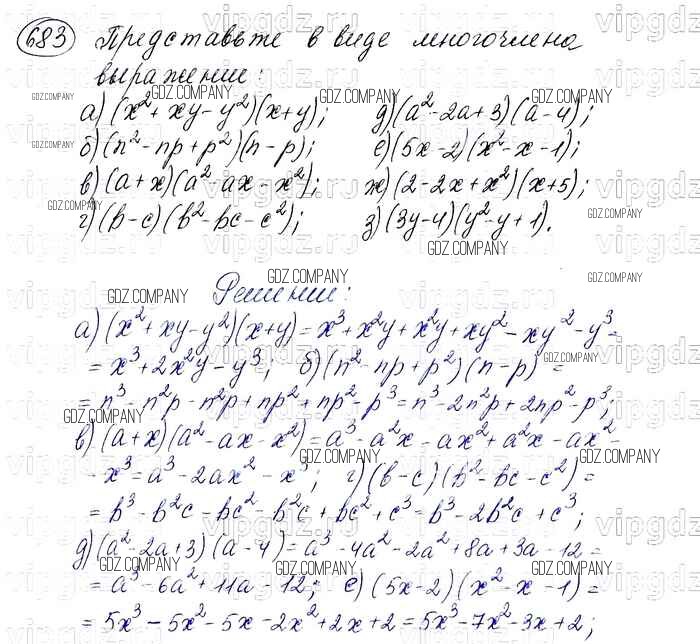 683 Представьте в виде многочлена
выражении:
а) (x² + xy - y²)(x + y); д) (a² - 2a + 3)(a - 4);
б) (n² - np + p²)(n - p); е) (5x - 2)(x² - x - 1);
в) (a + x)(a² - ax - x²); ж) (2 - 2x + x²)(x + 5);
г) (b - c)(b² - bc - c²); з) (3y - 4)(y² - y + 1).
Решение:
а) (x² + xy - y²)(x + y) = x³ + x²y + x²y + xy² - xy² - y³ =
= x³ + 2x²y - y³; б) (n² - np + p²)(n - p) =
= n³ - n²p - n²p + np² + np² - p³ = n³ - 2n²p + 2np² - p³;
в) (a + x)(a² - ax - x²) = a³ - a²x - ax² + a²x - ax² -
- x³ = a³ - 2ax² - x³; г) (b - c)(b² - bc - c²) =
= b³ - b²c - bc² - b²c + bc² + c³ = b³ - 2b²c + c³;
д) (a² - 2a + 3)(a - 4) = a³ - 4a² - 2a² + 8a + 3a - 12 =
= a³ - 6a² + 11a - 12; е) (5x - 2)(x² - x - 1) =
= 5x³ - 5x² - 5x - 2x² + 2x + 2 = 5x³ - 7x² - 3x + 2;